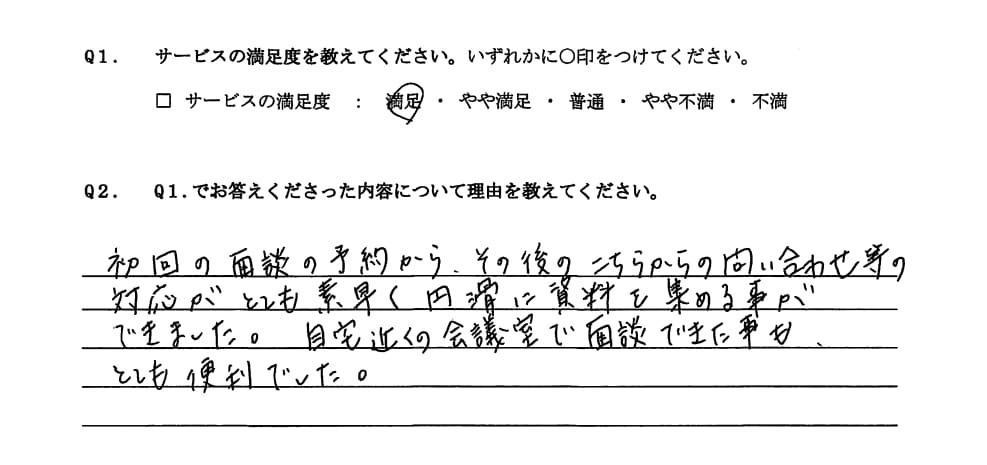 Q1. サービスの満足度を教えてください。いずれかに〇印をつけてください。
□ サービスの満足度 : 満足 ・ やや満足 ・ 普通 ・ やや不満 ・ 不満
Q2. Q1.でお答えくださった内容について理由を教えてください。
初回の面談の予約から、その後のこちらからの問い合わせ等の
対応がとても素早く円滑に資料を集める事が
できました。自宅近くの会議室で面談できた事も、
とても便利でした。